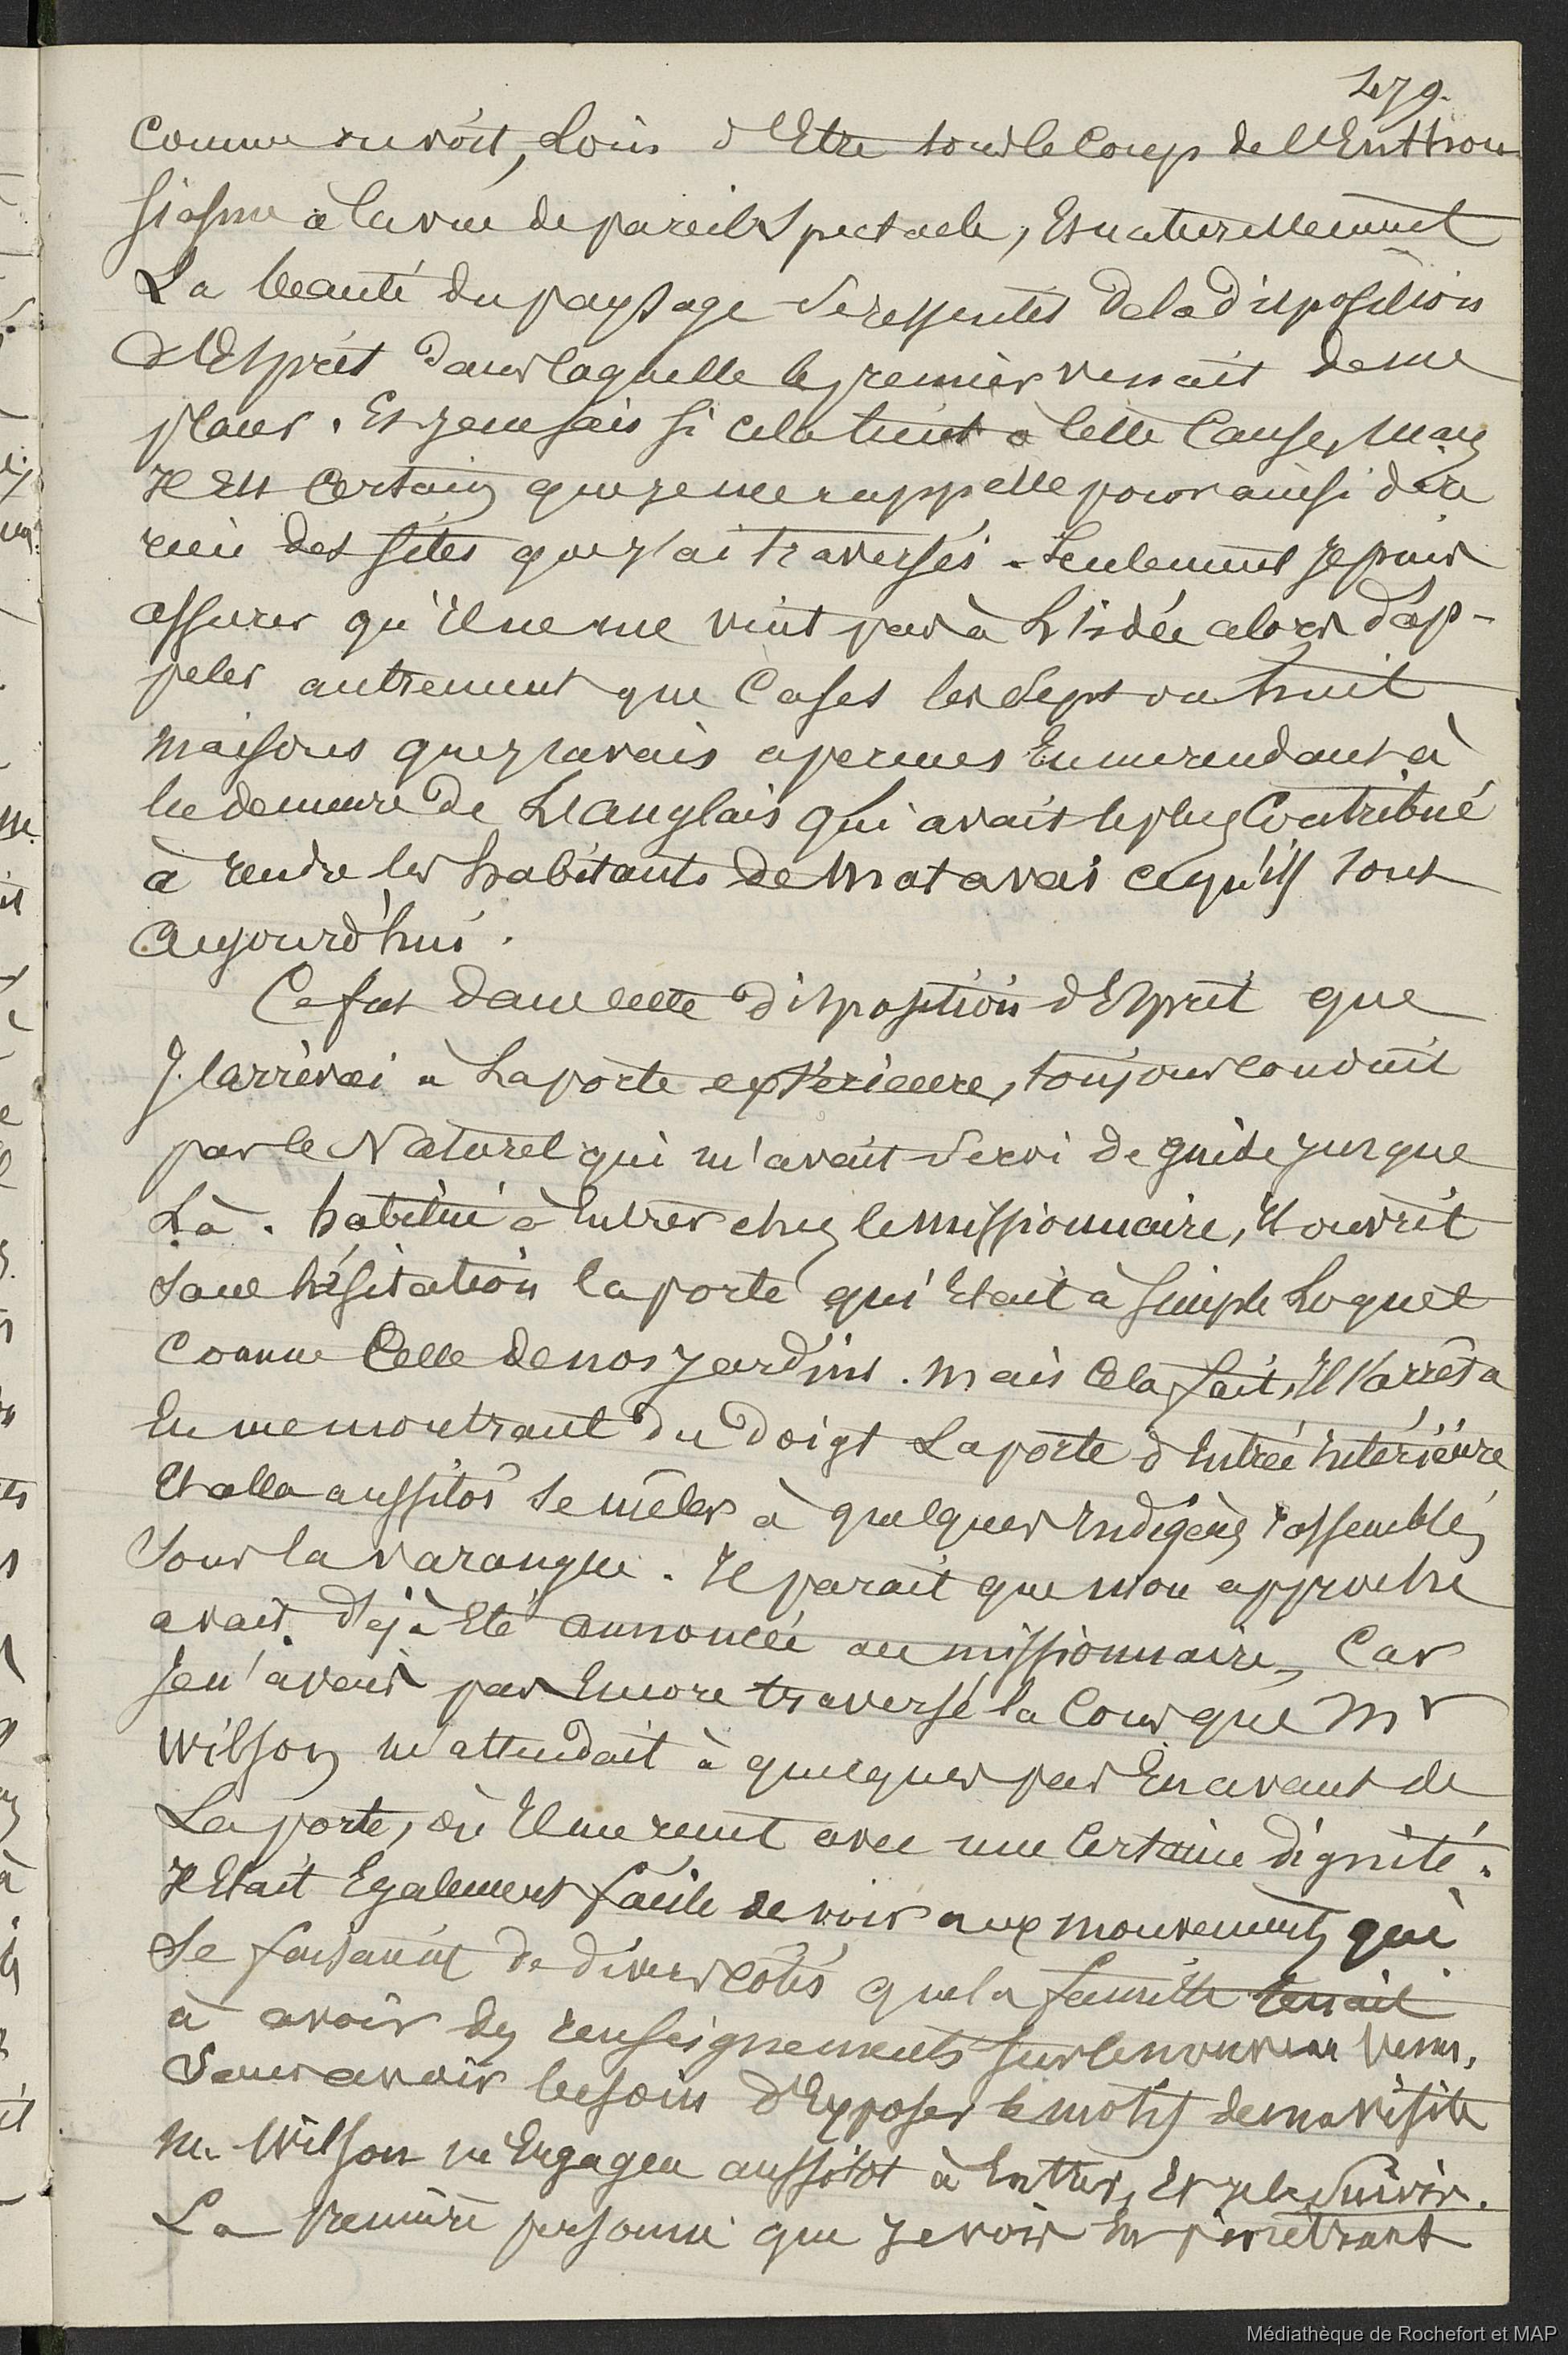 479.
Comme on voit, Loin d'Etre sous le Coup de l'Enthou
siasme à la vue de pareil Spectacle, Et naturellement
La beauté du paysage se ressentit de la disposition
d'Esprit dans laquelle le premier venait de me
placer. Et je ne sais si cela tient à cette Cause, mais
il Est Certain que je ne me rappelle pour ainsi dire
rien des sites que j'ai traversés. Seulement je puis
assurer qu'il ne me vint pas à L'idée alors d'ap-
peler autrement que Cases les sept ou huit
maisons que j'avais aperçues En me rendant à
la demeure de L'anglais qui avait le plus Contribué
à rendre les habitants de Matavai ce qu'ils sont
Aujourd'hui.
Ce fut dans cette disposition d'Esprit que
J'arrivai à La porte extérieure, toujours conduit
par le Naturel qui m'avait servi de guide jusque
Là. habitué à Entrer chez le missionnaire, il ouvrit
sans hésitation la porte qui Etait à simple Loquet
Comme Celle de nos jardins. mais Cela fait, Il s'arrêta
En me montrant du doigt La porte d'Entrée intérieure
Et alla aussitôt se mêler à quelques indigènes rassemblés
Sous la varangue. Il parait que mon approche
avait déjà Eté annoncée au missionnaire, Car
Je n'avais pas Encore traversé la Cour que Mr
Wilson m'attendait à quelques pas En avant de
La porte, où Il me reçut avec une Certaine dignité.
Il Etait Egalement facile de voir aux mouvements qui
Se faisaient de divers côtés que la famille tenait
à avoir des renseignements sur le nouveau venu.
Sans avoir besoin d'Exposer le motif de ma visite
Mr Wilson m'Engagea aussitôt à Entrer, Et je le suivis.
La première personne que je vois En pénétrant
Médiathèque de Rochefort et MAP